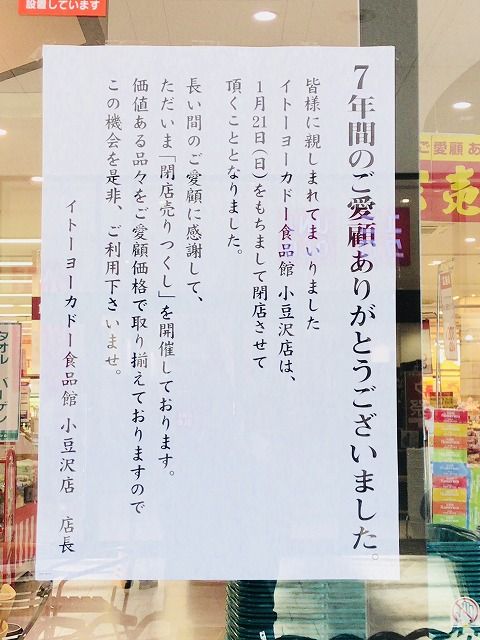 設置しています
7年間のご愛顧ありがとうございました。
皆様に親しまれてまいりました
イトーヨーカドー食品館 小豆沢店は、
1月21日(日)をもちまして閉店させて
頂くこととなりました。
長い間のご愛顧に感謝して、
ただいま「閉店売りつくし」を開催しております。
価値ある品々をご愛顧価格で取り揃えておりますので
この機会を是非、ご利用下さいませ。
イトーヨーカドー食品館 小豆沢店 店長
ご愛顧あ
売
タオル バーゲン